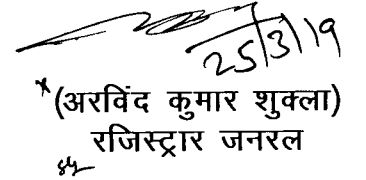 25/3/19
(अरविंद कुमार शुक्ला)
रजिस्ट्रार जनरल